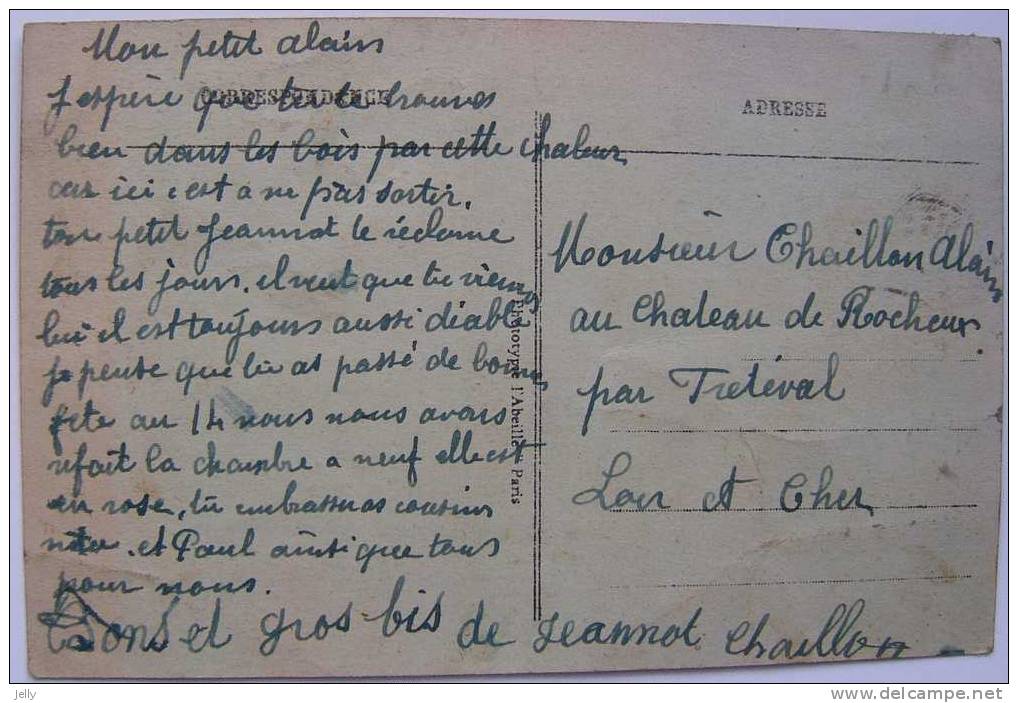 Mon petit alain
CORRESPONDANCE
J espère que tu te trouves
bien dans les bois par cette chaleur
car ici c est a ne pas sortir.
ton petit Jeannot te réclame
tous les jours. il veut que tu viennes
lui il est toujours aussi diable
je pense que tu as passé de bonnes
fete au 14 nous nous avons
refait la chambre a neuf elle est
en rose, tu embrasseras cousins
et Paul ainsi que tous
pour nous.
Bons et gros bis de Jeannot Chaillon
Phototypie l'Abeille" Paris
ADRESSE
Monsieur Chaillon Alain
au Chateau de Rocheux
par Fréteval
Loir et Cher
jelly
delcampe.net